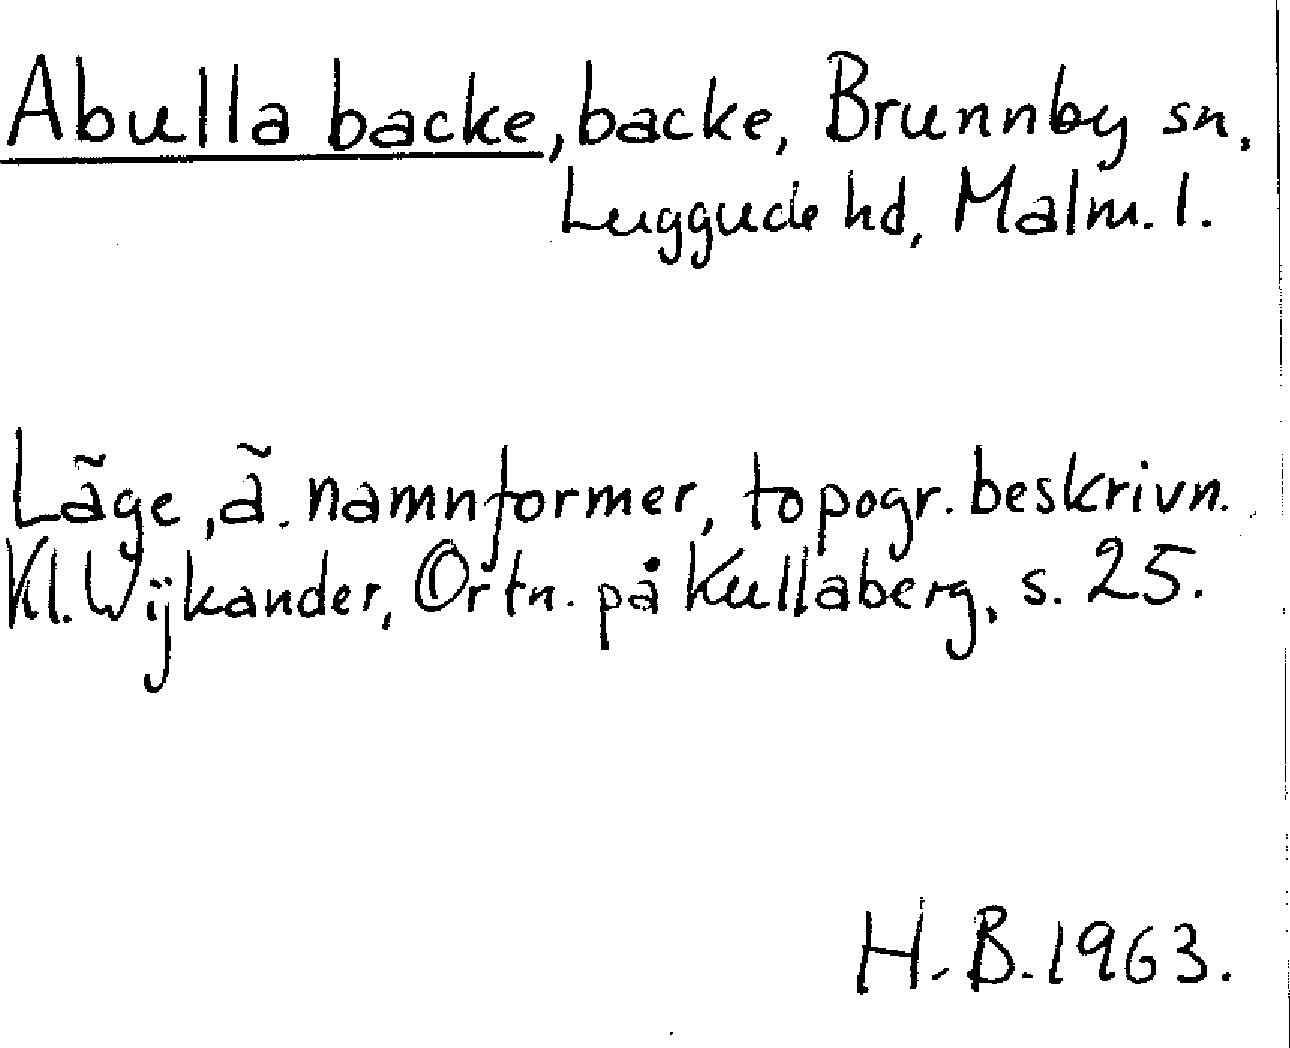 Abulla backe, backe, Brunnby sn,
Luggude hd, Malm. l.
Läge, ä. namnformer, topogr. beskrivn.
Kl. Wijkander, Ortn. på Kullaberg, s. 25.
H. B. 1963.